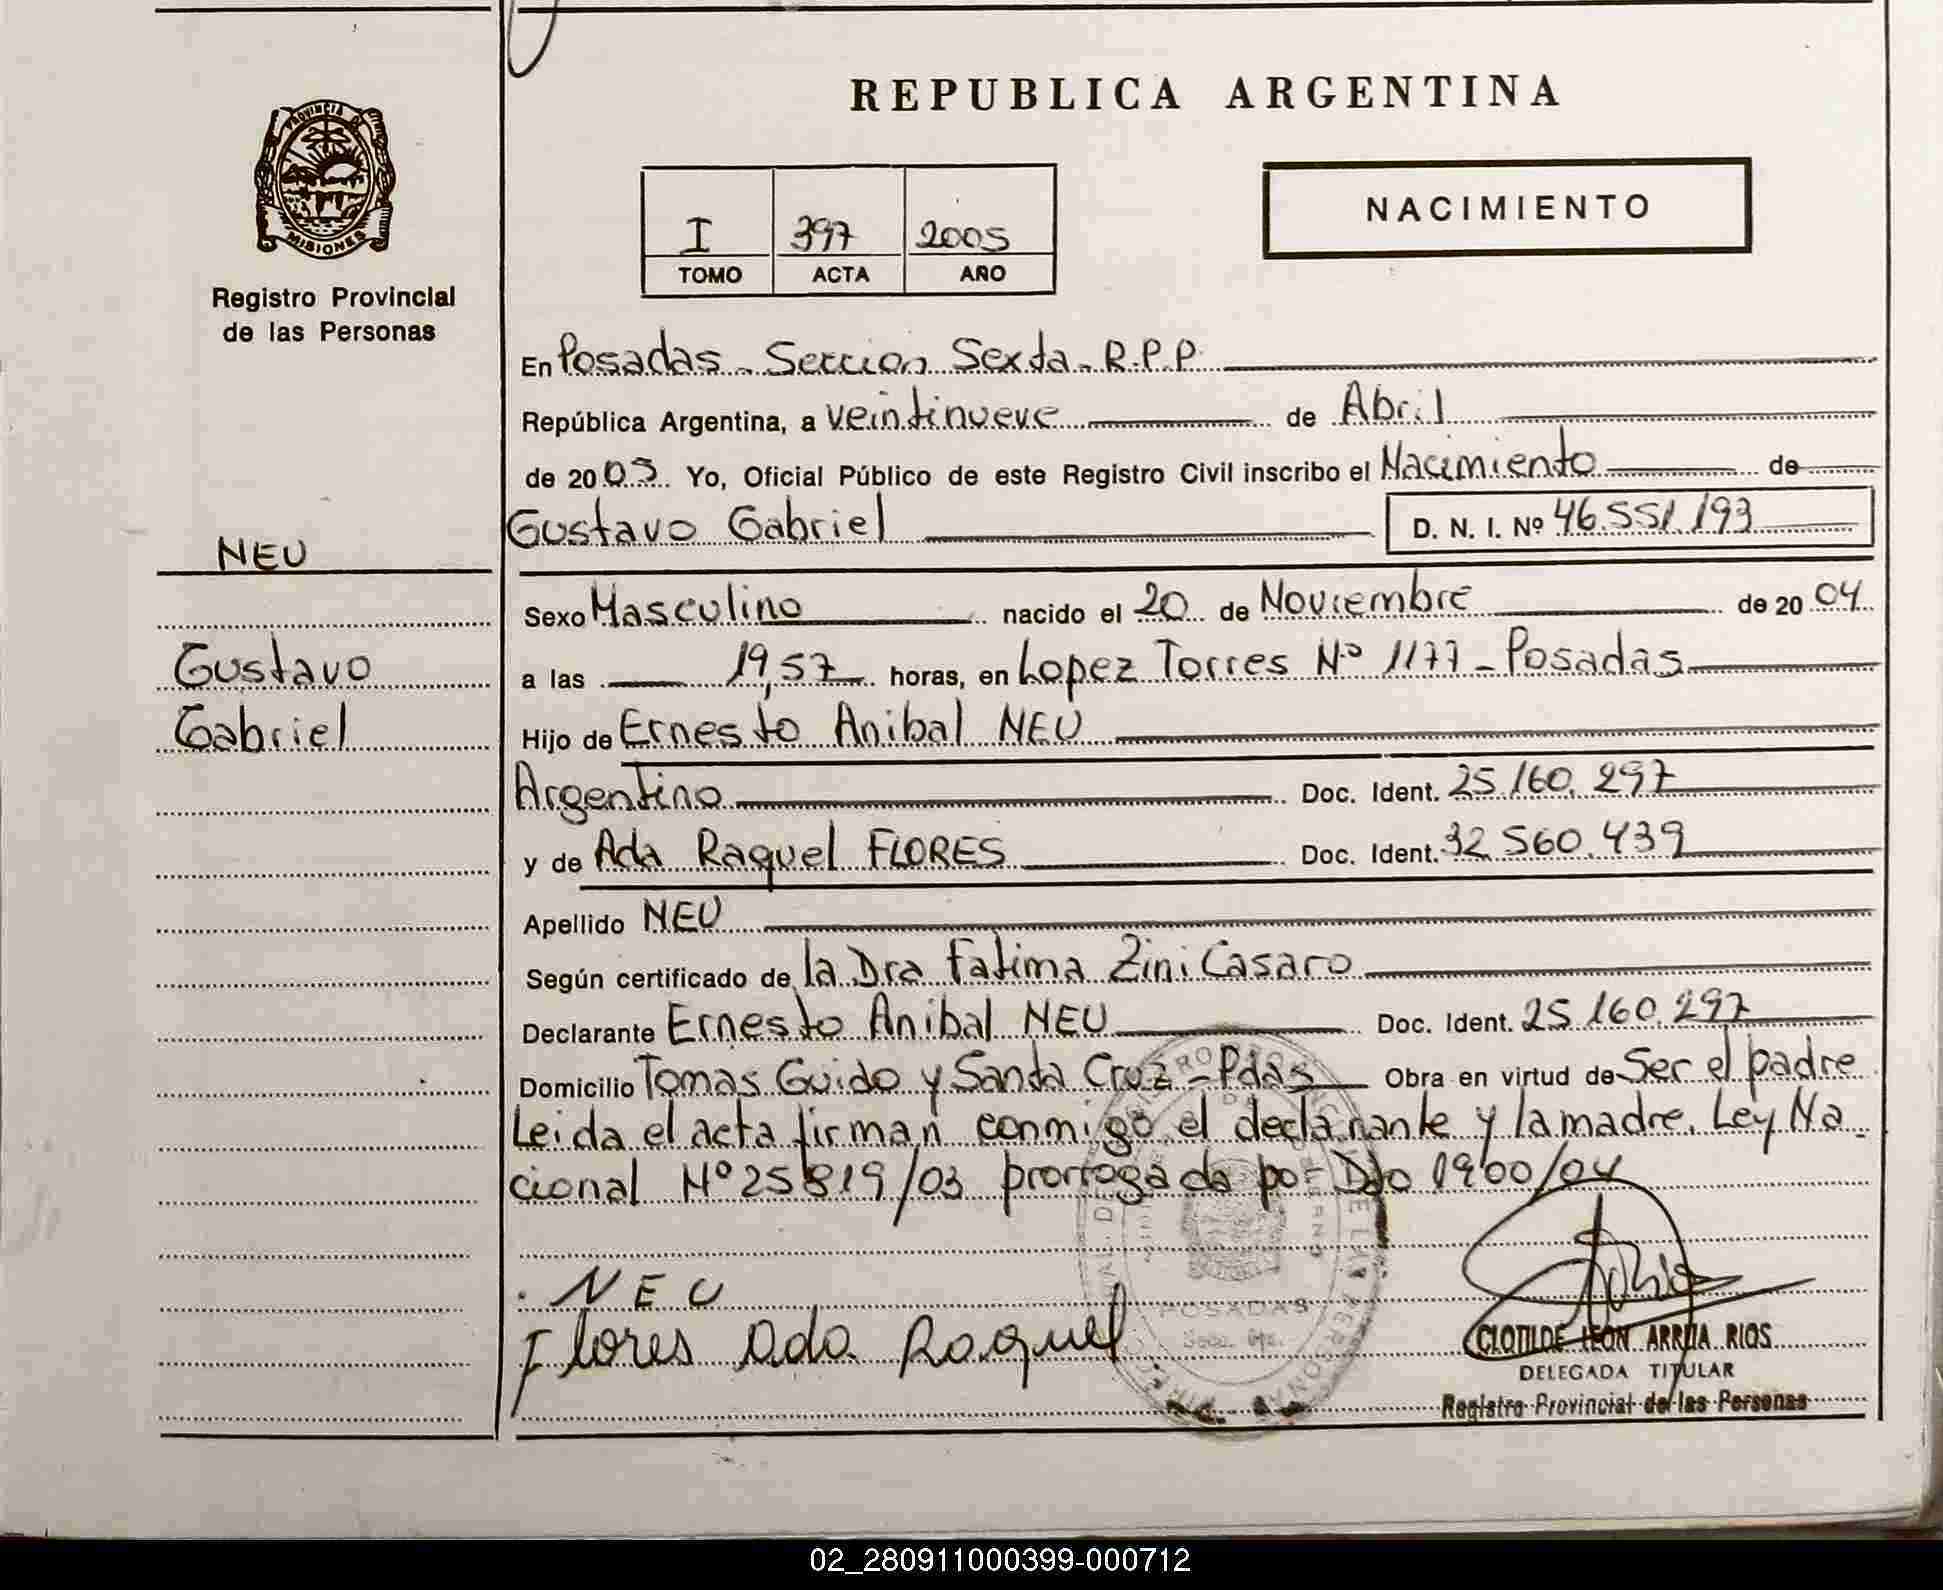 REPUBLICA ARGENTINA
PROVINCIA DE
MISIONES
Registro Provincial
de las Personas
I 397 2005
TOMO ACTA AÑO
NACIMIENTO
En Posadas - Sección Sexta - R.P.P.
República Argentina, a veintinueve de Abril
de 2005 Yo, Oficial Público de este Registro Civil inscribo el Nacimiento de
NEU
Gustavo Gabriel D. N. I. Nº 46.551.193
Sexo Masculino nacido el 20 de Noviembre de 2004
Gustavo
a las 19,57 horas, en Lopez Torres Nº 1177 - Posadas
Gabriel
Hijo de Ernesto Anibal NEU
Argentino Doc. Ident. 25.160.297
y de Ada Raquel FLORES Doc. Ident. 32.560.439
Apellido NEU
Según certificado de la Dra Fatima Zini Casaro
Declarante Ernesto Anibal NEU Doc. Ident. 25.160.297
Domicilio Tomas Guido y Santa Cruz - Pdas Obra en virtud de Ser el padre
Leida el acta firman conmigo el declarante y la madre. Ley Na-
cional Nº 25819/03 prorrogada por Dto 1900/04
NEU
Flores Ada Raquel
POSADAS
CLOTILDE LEON ARRUA RIOS
DELEGADA TITULAR
Registro Provincial de las Personas
02_280911000399-000712